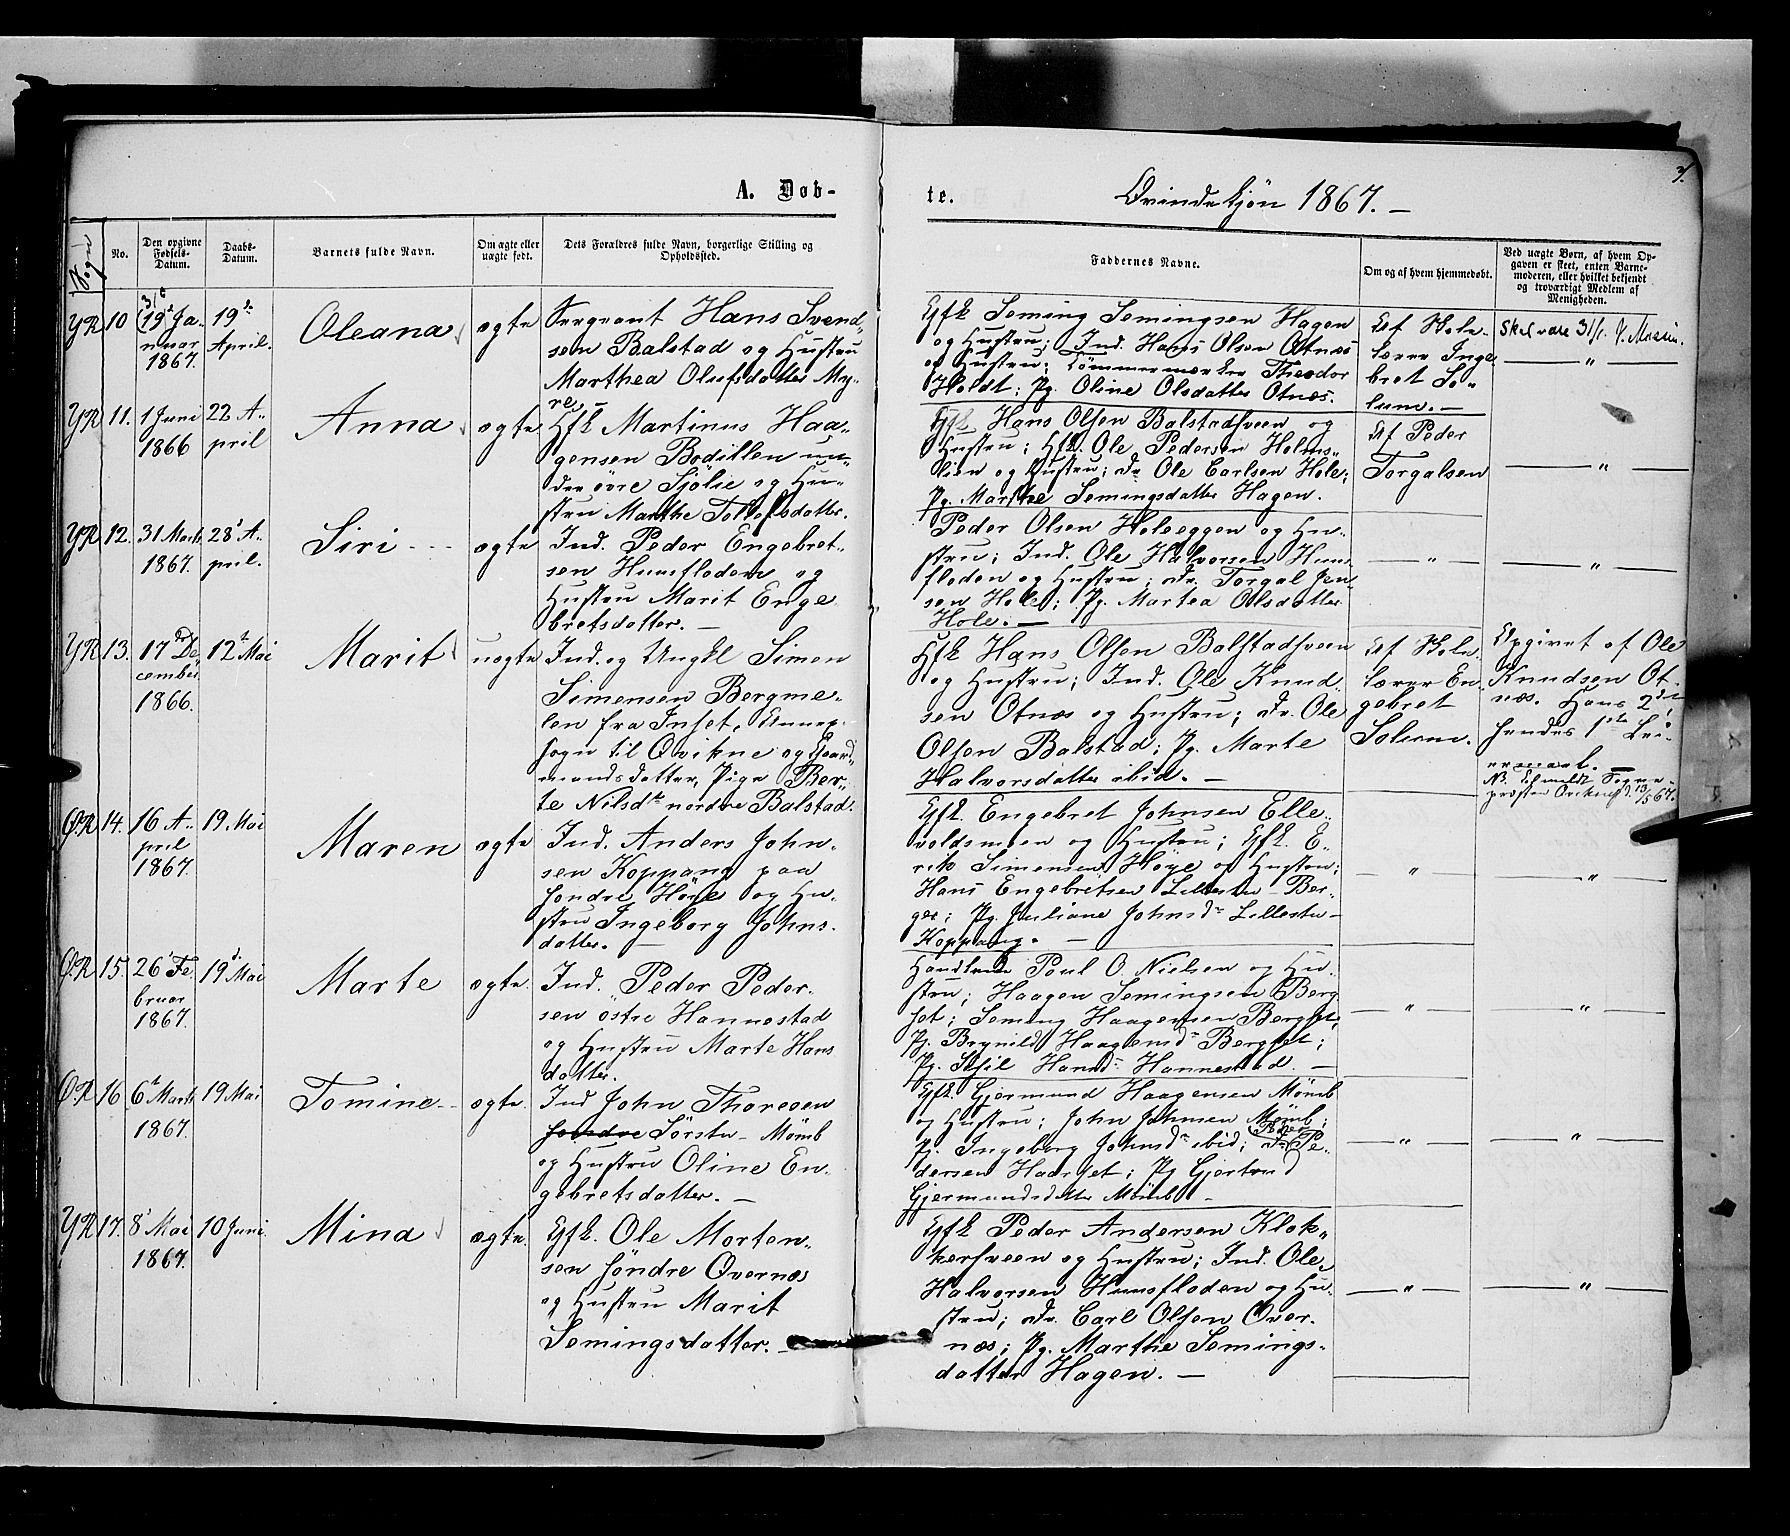 3.
A. Døb-
te.
Qvindekjøn 1867. —
Sogn
No.
Den opgivne Fødsels-Datum.
Daabs-Datum.
Barnets fulde Navn.
Om ægte eller uægte født.
Dets Forældres fulde Navn, borgerlige Stilling og Opholdssted.
Faddernes Navne.
Om og af hvem hjemmedøbt.
Ved uægte Børn, af hvem Op-
gaven er skeet, enten Barne-
moderen, eller hvilket bekjendt
og troværdigt Medlem af
Menigheden.
YR 10
19de Ja-
nuar
1867.
19de
April.
Oleana
ægte
Sergeant Hans Svend-
sen Balstad og Hustru
Marthea Olufsdatter My-
re. —
Gfk Seming Semingsen Hagen
og Hustru; Ind. Hans Olsen Otnæs
og Hustru; Tømmermærker Theodor
Holdt; Pg. Oline Olsdatter Otnæs.
Af Skole-
lærer Inge
bret So-
lum. —
Skal være 31/1
"
YR 11.
1 Juni
1866
22 A-
pril
Anna
ægte
Gfk Martinus Haa-
gensen Bodillen un-
der øvre Sjølie og Hu-
stru Marthe Tollefsdatter.
Gfk Hans Olsen Balstadsveen og
Hustru; Hfk. Ole Pedersen Holms-
lien og Hustru; Dr. Ole Carlsen Hole;
Pg. Marthe Semingsdatter Hagen.
Af Peder
Torgalsen
"
YR 12.
31 Marts
1867.
28' A-
pril.
Siri
ægte
Ind. Peder Engebret-
sen Hunsfloden og
Hustru Marit Enge
bretsdatter. —
Peder Olsen Holeeggen og Hu-
stru; Ind. Ole Halvorsen Huns-
floden og Hustru; Dr. Torgal Jen-
sen Hole; Pg. Martea Olsdatter
Hole. —
"
"
YR 13.
17de De-
cember
1866.
12te Mai
Marit
uægte
Ind. og Ungkl Simen
Simensen Bergme-
len fra Inset, Annex-
sogn til Qvikne og Gaard-
mandsdatter, Pige Ber-
te Nilsdtr nordre Balstad.
Hfk Hans Olsen Balstadsveen
og Hustru; Ind. Ole Knud-
sen Otnæs og Hustru; Dr. Ole
Olsen Balstad; Pg. Marte
Halvorsdatter ibid. —
Af Skole-
lærer En-
gebret
Solum.
Opgivet af Ole
Knudsen Ot-
næs. Hans 2det
hendes 1ste Lei-
ermaal. —
N. Anmeldt Sogne-
præsten Qvikne d. 13/5 67.
ØR 14.
16 A-
pril
1867.
19. Mai
Maren
ægte
Ind. Anders John-
sen Koppang paa
søndre Høye og Hu-
stru Ingeborg Johns-
datter. —
Gfk. Engebret Johnsen Elle-
voldsmoen og Hustru; Gfk. E-
rik Simensen Høye og Hustru;
Hans Engebretsen Lillestu Ber-
ger; Pg. Juliane Johnsdr Lillestu-
Koppang. —
"
"
ØR 15.
26' Fe-
bruar
1867.
19' Mai
Marte
ægte.
Ind. Peder Peder-
sen østre Hannestad
og Hustru Marte Hans
datter.
Handlende Poul O. Nielsen og Hu-
stru; Haagen Semingsen Berg-
set; Seming Haagensen Bergset;
Pg. Brynild Haagensdr Bergset;
Pg. Kjil Hansdr Hannestad. —
"
"
ØR 16
6te Marts
1867.
19 Mai
Tomine
ægte.
Ind John Thoresen
søndre Sørstu- Mømb
og Hustru Oline En-
gebretsdatter. —
Gfk. Gjermund Haagensen Mømb
og Hustru; John Johnsen Mømb;
Pg. Ingeborg Johnsdr ibid; Dr. Pe-
dersen Haarset; Pg Gjertrud
Gjermundsdatter Mømb. —
"
"
YR 17.
8' Mai
1867.
10 Juni.
Mina
ægte.
Gfk. Ole Morten-
sen søndre Overnæs
og Hustru Marit
Semingsdatter. —
Gfk Peder Andersen Klok-
kersveen og Hustru; Ind. Ole
Halvorsen Hunsfloden og Hu-
stru; Dr. Carl Olsen Over-
næs; Pg. Marthe Semings-
datter Hagen. —
"
"